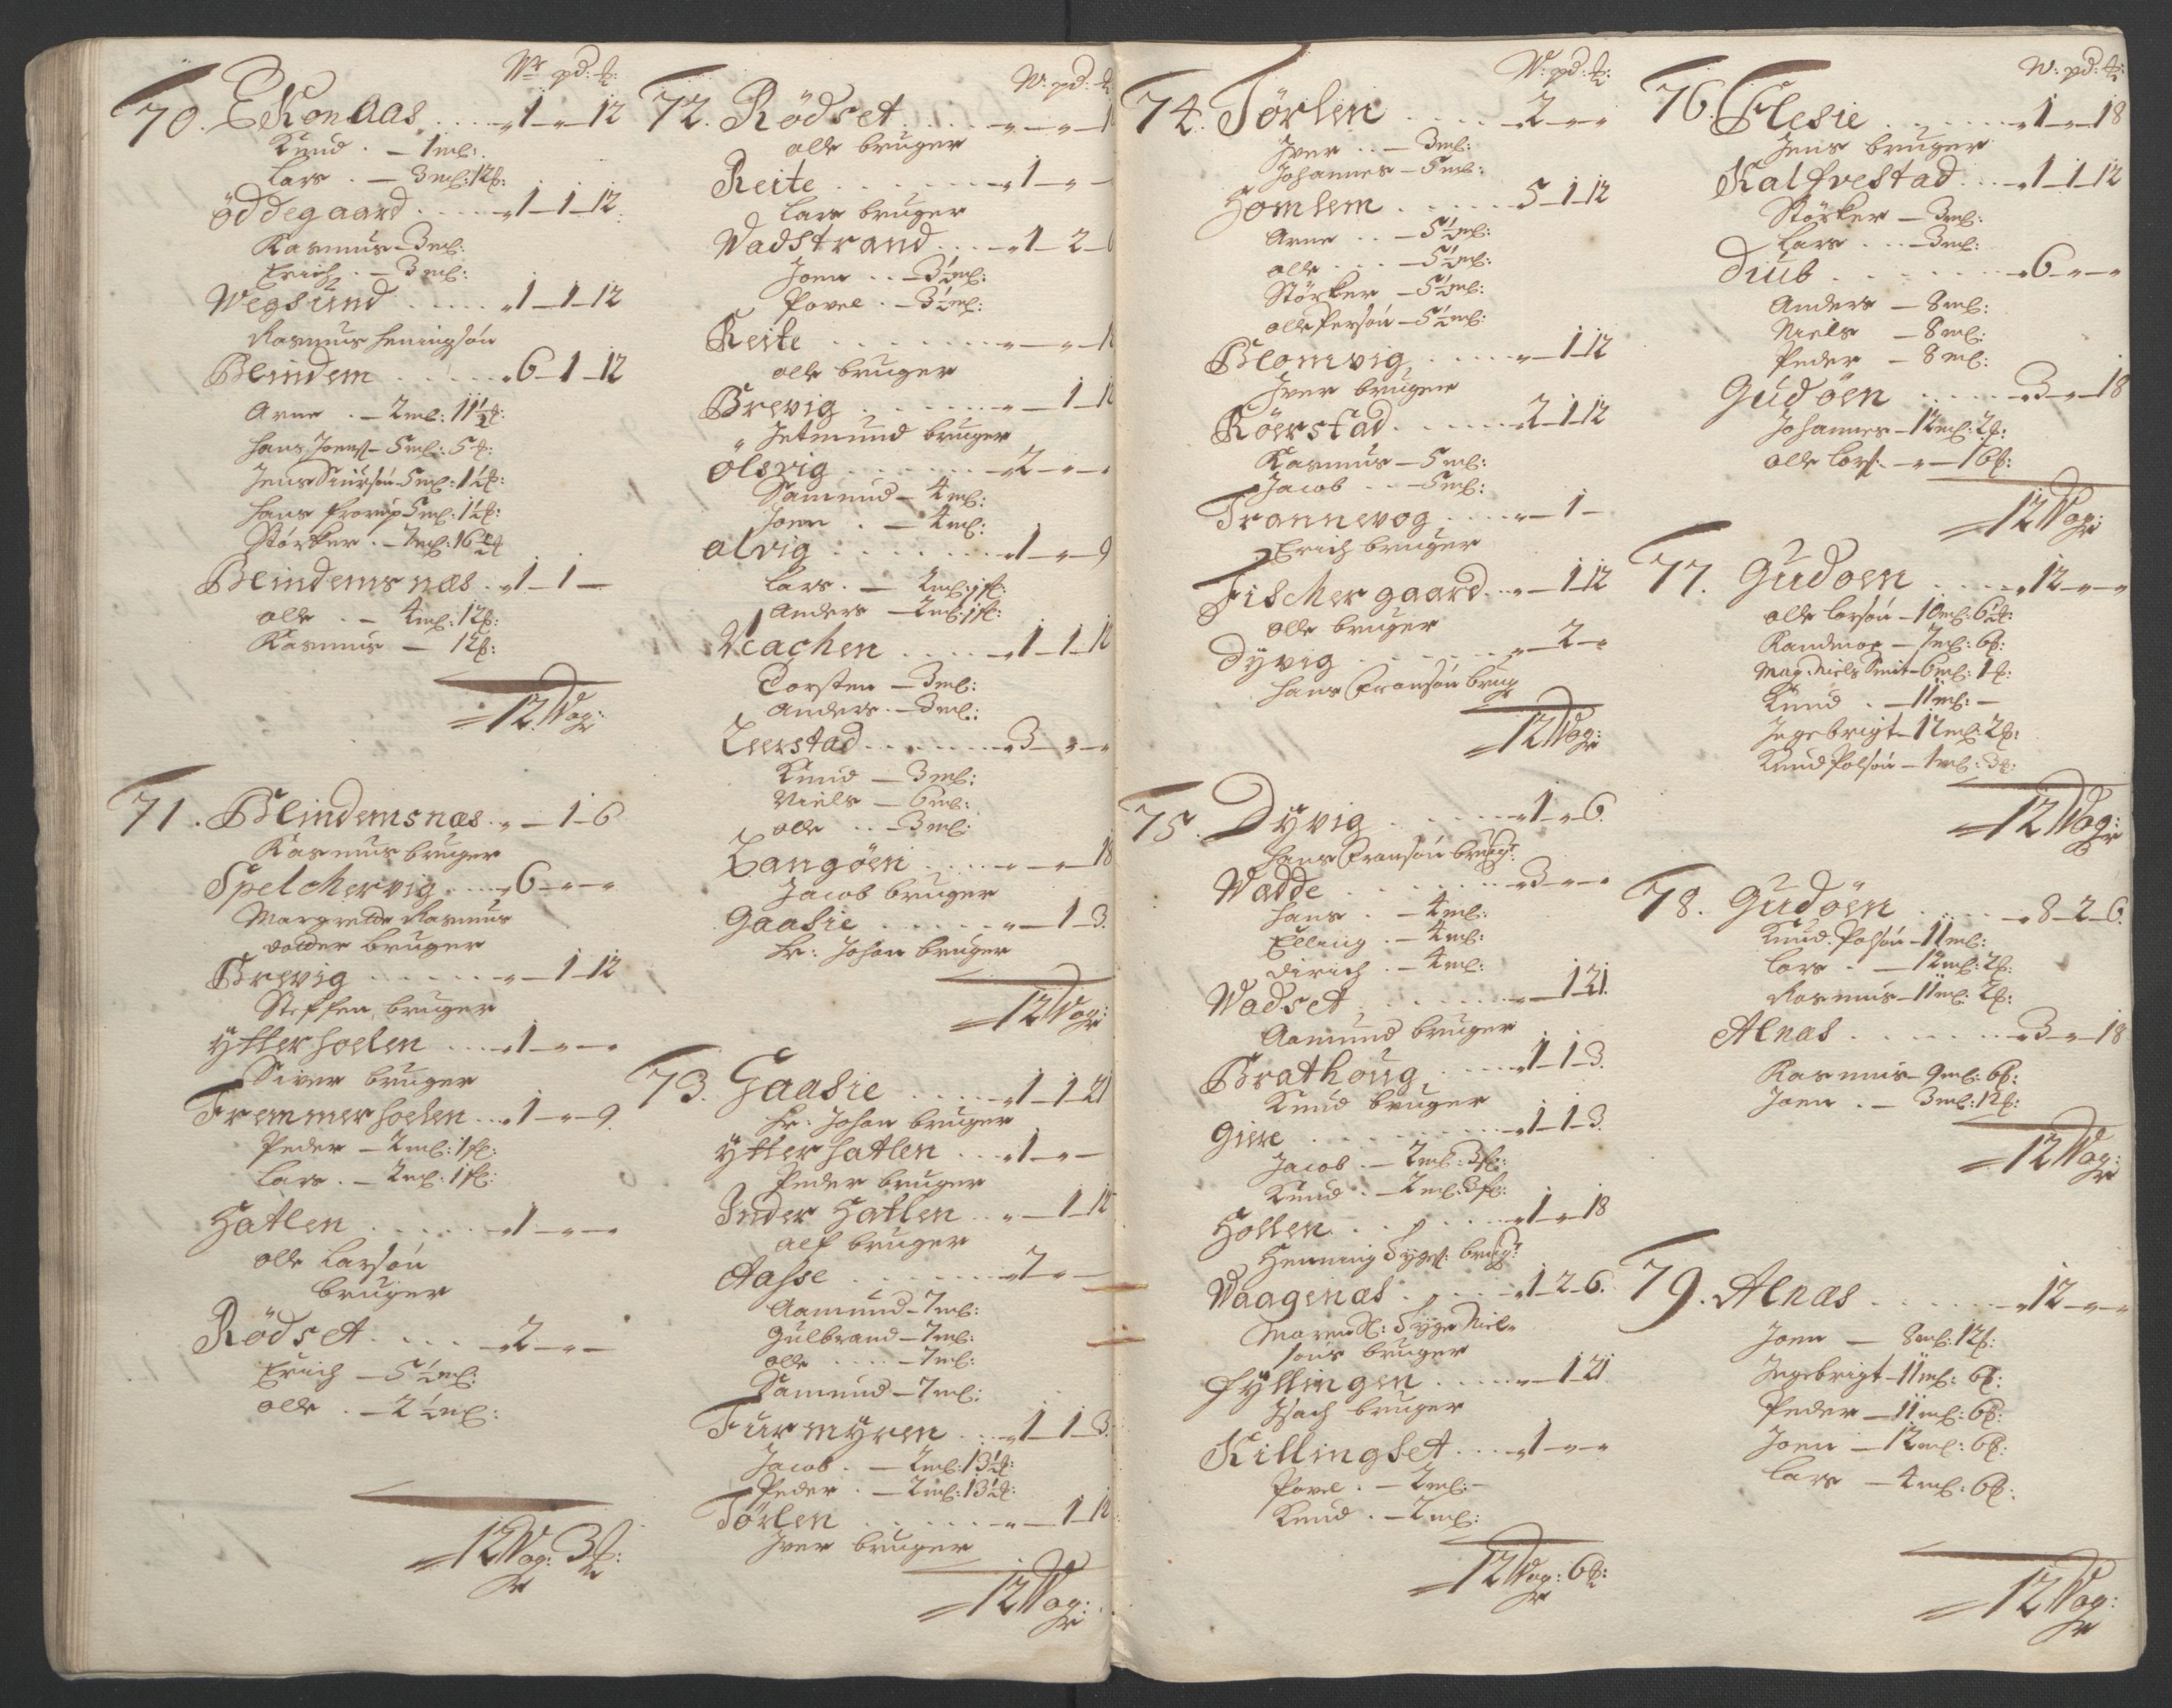 Wr pd: ℔:
70. Ekonaas .... „1„12
Knud . — 1ml:
Lars . — 3ml:12℔:
öddegaard .... „1—1—12
Rasmus — 3ml:
Erich . — 3ml:
Wegsund ..... „1—1—12
Rasmus Heningsön
Blindem ..... „6—1—12
Arne . — 2ml: 11½℔:
Hans Joens — 5ml: 5℔:
Jens Siursön 5ml: 1½℔:
Hans 5ml: 1½℔:
Störker . — 7ml: 16½℔
Blindemsnæs . „1—1—
olle . — 4ml: 12℔:
Rasmus — 12℔:
12 Wog:
71. Blindemsnæs . „—1—6
Rasmus bruger
Spelchervig .... „6—„—„
Margrette Rasmus
datter bruger
Brevig ...... „—1—12
Steffen bruger
ytterhoelen .... „1—„—„
Siver bruger
Fremmerhoelen ... „1—„—9
Peder — 2ml: 1℔:
Lars . — 2ml: 1℔:
Hatlen ...... „1—„—„
olle Larsön
bruger
Rödset .... „2—„—
Erich — 5½ml:
olle . — 2½ml:
12 Wog: 3℔:
W: pd: ℔
72. Rödset ..... „—„—1
olle bruger
Reite ....... „1—„—
Lars bruger
Wadstrand .... „1—2—6
Joen .. — 3½ml:
Povel . — 3½ml:
Reite ....... „—„—1
olle bruger
Brevig ...... „—1—12
„ Jetmund bruger
ölsvig ...... „2—„—„
Samund — 4ml:
Joen . — 4ml:
alvig ....... „1—„—9
Lars . — 2ml: 1℔:
Anders — 2ml: 1℔:
Veachen ..... „1—1—12
Torsten — 3ml:
Anders . — 3ml:
Leerstad ...... „3—„—„
Knud — 3ml:
Niels — 6ml:
olle .. — 3ml:
Langöen ..... „—„—18
Jacob bruger
Gaasie ...... „—1—3
Hr: Johan bruger
12 Wog:
73. Gaasie ..... „1—1—21
Hr: Johan bruger
ytterhatlen ... „1—„—
Peder bruger
Inder Hatlen .. „—1—12
alf bruger
Aasse ....... „7—„—
Aamund — 7ml:
Gulbrand — 7ml:
olle .... — 7ml:
Samund — 7ml:
Furmyren ... „1—1—3
Jacob . — 2ml: 13½℔:
Peder . — 2ml: 13½℔:
Törlen ...... „—1—12
Iver bruger
12 Wog:
W: pd: ℔:
74. Törlen ..... „2—„—„
Iver .. — 3ml:
Johannes — 5ml:
Homlem ..... 5—1—12
Arne .. — 5½ml:
olle ... — 5½ml:
Störker — 5½ml:
olle Persön — 5½ml:
Blomvig ..... „—1—12
Iver bruger
Röerstad ..... „2—1—12
Rasmus — 5ml:
Jacob .. — 5ml:
Trannevog .... „—1—
Erich bruger
Fischergaard .. „—1—12
olle bruger
Dyvig ...... „—2—„
Hans Fransön brug
12 Wog:
75. Dyvig ..... „1—„—6.
Hans Fransön brug:
Wadde ...... „3—„—„
Hans . — 4ml:
Elling . — 4ml:
Dirich . — 4ml:
Wadset ..... „—1—21.
Aamund bruger
Brathoug .... „1—1—3.
Knud bruger
Giere ....... „1—1—3.
Jacob . — 2ml: 3℔:
Knud . — 2ml: 3℔:
Hollen ...... „1—„—18
Henning Tyges: brug:
Vaagenæs .... „1—2—6.
Maren Sl: Tyge Niel-
söns bruger
fyllingen .... „—1—21
Isach bruger
Killingset .... „1—„—„
Povel . — 2ml: —
Knud . — 2ml:
12 Wog: 6℔:
W: pd: ℔:
76. Flesie ..... „1—„—18
Jens bruger
Kalfvestad ... „1—1—12
Störker — 3ml:
Lars ... — 3ml:
Diub ...... „6—„—„
Anders — 8ml:
Niels — 8ml:
Peder — 8ml:
Gudöen ..... „3—„—18
Johannes — 12ml: 2℔:
olle Lars: — „—16℔:
12 Wog:
77. Gudöen .... „12—„—„
olle Larsön — 10ml: 6½℔:
Randmoe — 7ml: 6℔:
Mag. Niels Smit — 6ml: 1℔:
Knud . — 11ml: —
Ingebrigt — 12ml: 2℔:
Knud Polsön — 1ml: 3℔:
12 Wog:
78. Gudöen .... „8—2—6.
Knud Polsön — 11ml:
Lars . — 12ml: 2℔:
Rasmus — 11ml: 2℔:
Alnæs ...... „3—„—18
Rasmus — 9ml: 6℔:
Joen . — 3ml: 12℔:
12 Wog:
79. Alnæs ..... „12—„—„
Joen — 8ml: 12℔:
Ingebrigt — 11ml: 6℔:
Peder — 11ml: 6℔:
Joen — 12ml: 6℔:
Lars — 4ml: 6℔:
12 Wog: